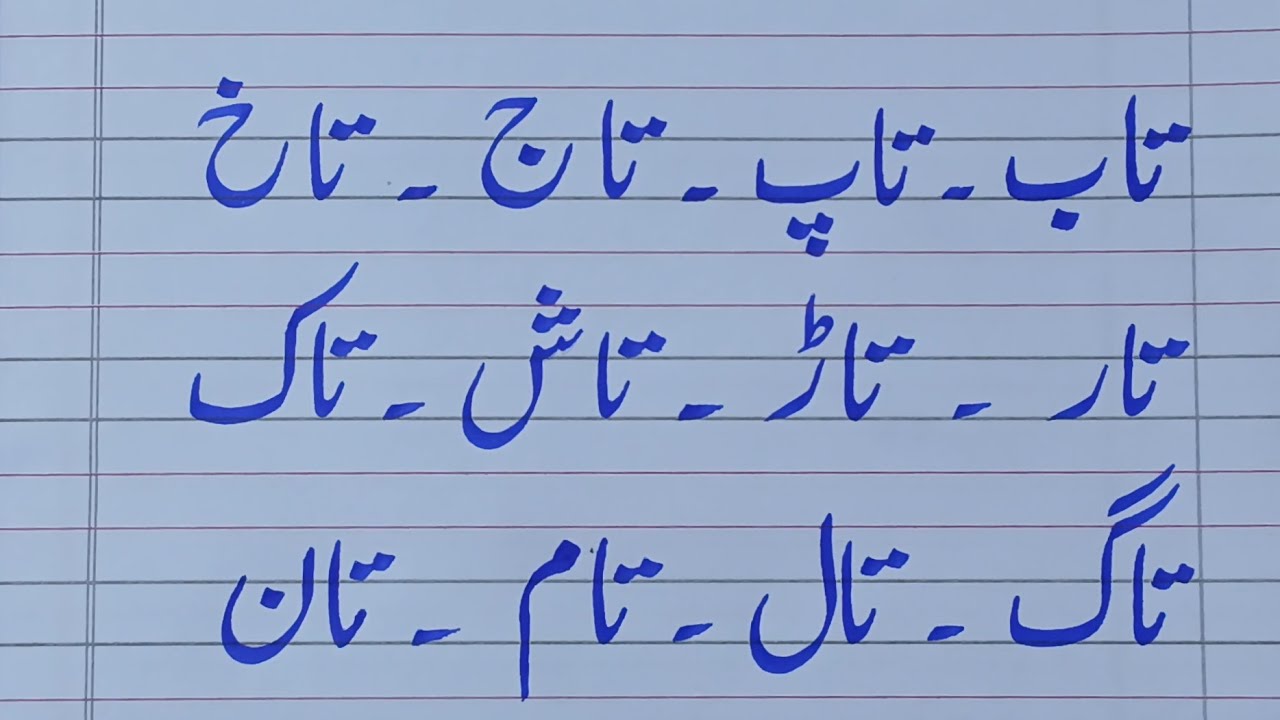 تاب ۔ تاپ ۔ تاج ۔ تاخ
تار ۔ تاڑ ۔ تاش ۔ تاک
تاگ ۔ تال ۔ تام ۔ تان